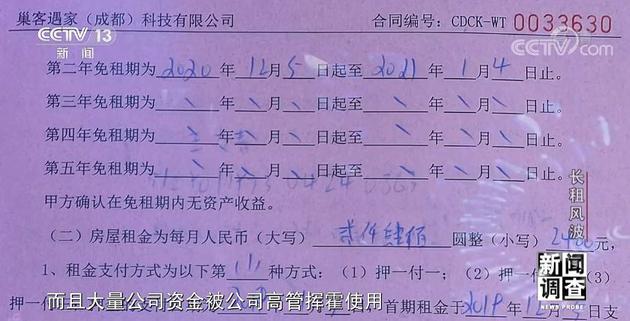 巢客遇家（成都）科技有限公司 合同编号：CDCK-WT 0033630
CCTV 13
新闻
CCTV.com
第二年免租期为2020年12月5日起至2021年1月4日止。
第三年免租期为\年\月\日起至\年\月\日止。
第四年免租期为\年\月\日起至\年\月\日止。
第五年免租期为\年\月\日起至\年\月\日止。
甲方确认在免租期内无资产收益。
（二）房屋租金为每月人民币（大写）贰仟肆佰圆整（小写）2400元，
1、租金支付方式为以下第（1）种方式：（1）押一付一；（2）押一付 （3）
押一付 首期租金于2019年12 5日支
而且大量公司资金被公司高管挥霍使用
长租风波
新闻
调查
NEWS PROBE